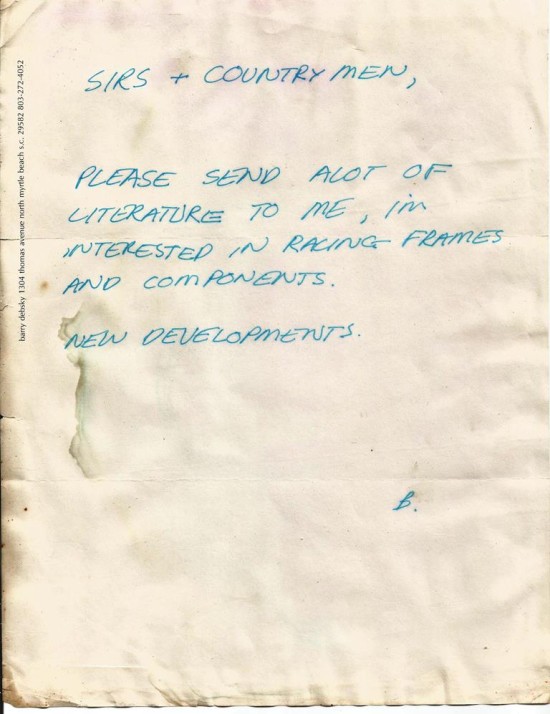 barry debsky 1304 thomas avenue north myrtle beach s.c. 29582 803-272-4052
SIRS + COUNTRYMEN,
PLEASE SEND ALOT OF
LITERATURE TO ME, I'M
INTERESTED IN RACING FRAMES
AND COMPONENTS.
NEW DEVELOPMENTS.
B.